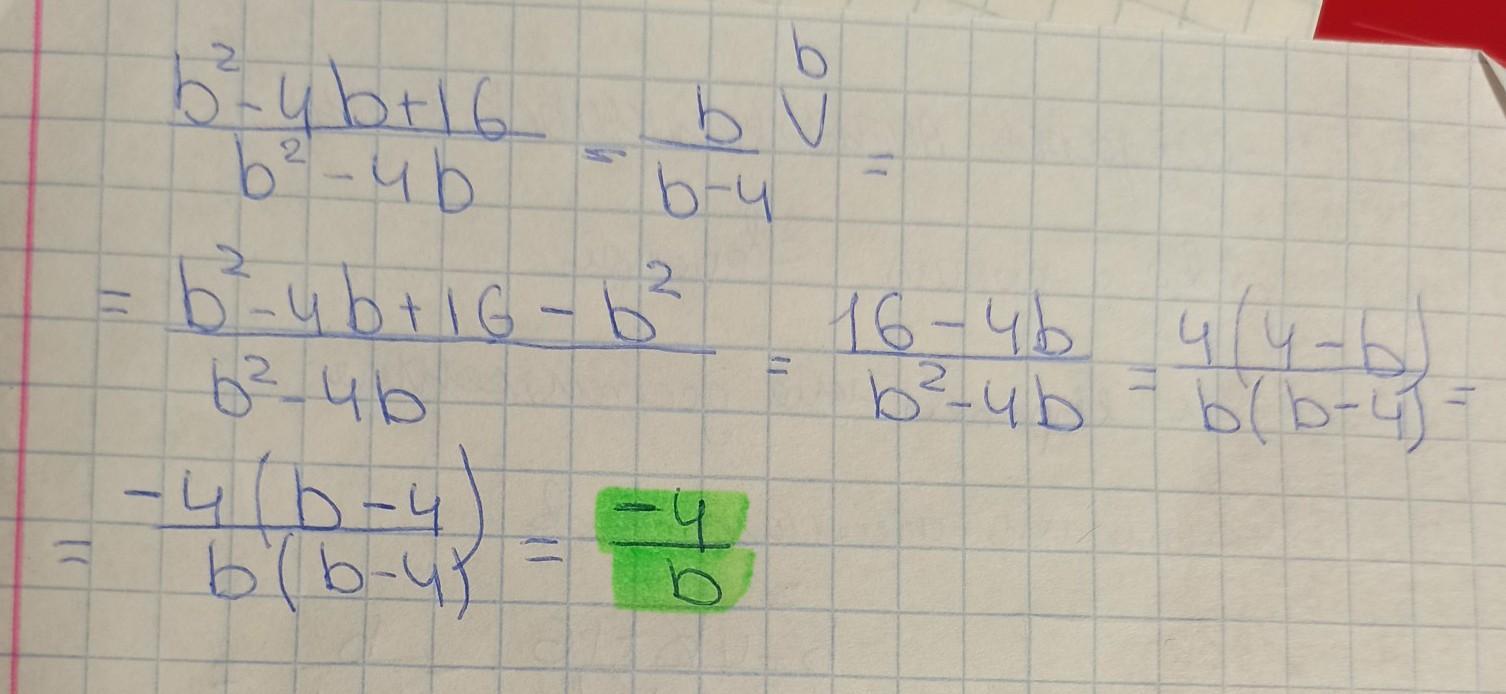 b²-4b+16/b²-4b - b/b-4 \b =
= b²-4b+16-b²/b²-4b = 16-4b/b²-4b = 4(4-b)/b(b-4) =
= -4(b-4)/b(b-4) = -4/b